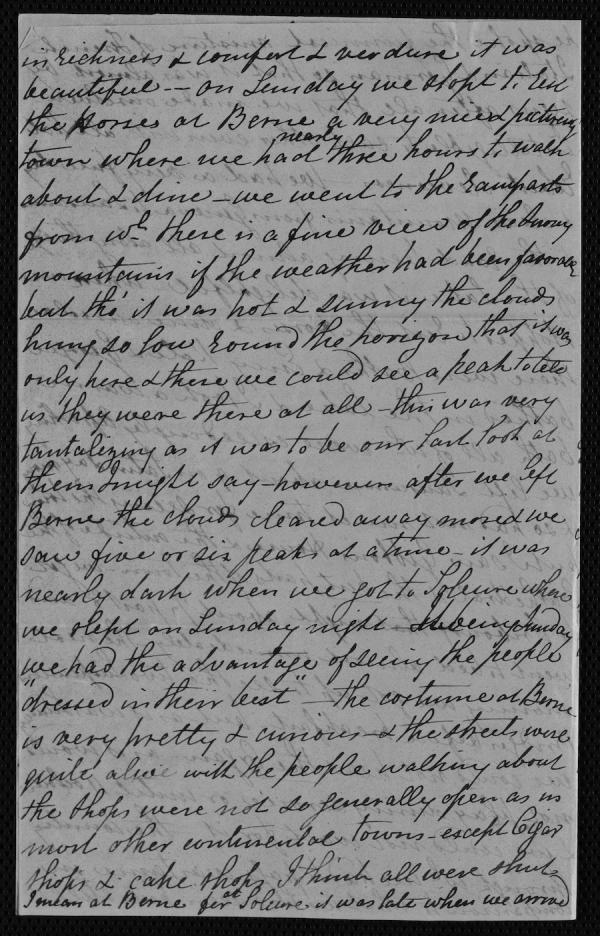 in richness & comfort & verdure it was
beautiful -- on Sunday we stopt to rest
the Horses at Berne a very nice & picturesq
town where we had nearly three hours to walk
about & dine - we went to the ramparts
from wh. there is a fine view of the snowy
mountains if the weather had been favorable
but tho' it was hot & sunny the clouds
hung so low round the horizon that it was
only here & there we could see a peak to tell
us they were there at all - this was very
tantalizing as it was to be our last look at
them I might say - however after we left
Berne the clouds cleared away more & we
saw five or six peaks at a time - it was
nearly dark when we got to Soleure where
we slept on Sunday night - it being Sunday
we had the advantage of seeing the people
"dressed in their best" - the costume at Berne
is very pretty & curious - & the streets were
quite alive with the people walking about
the shops were not so generally open as in
most other continental towns - except Cigar
shops & cake shops I think all were shut
I mean at Berne for at Soleure it was late when we arrived